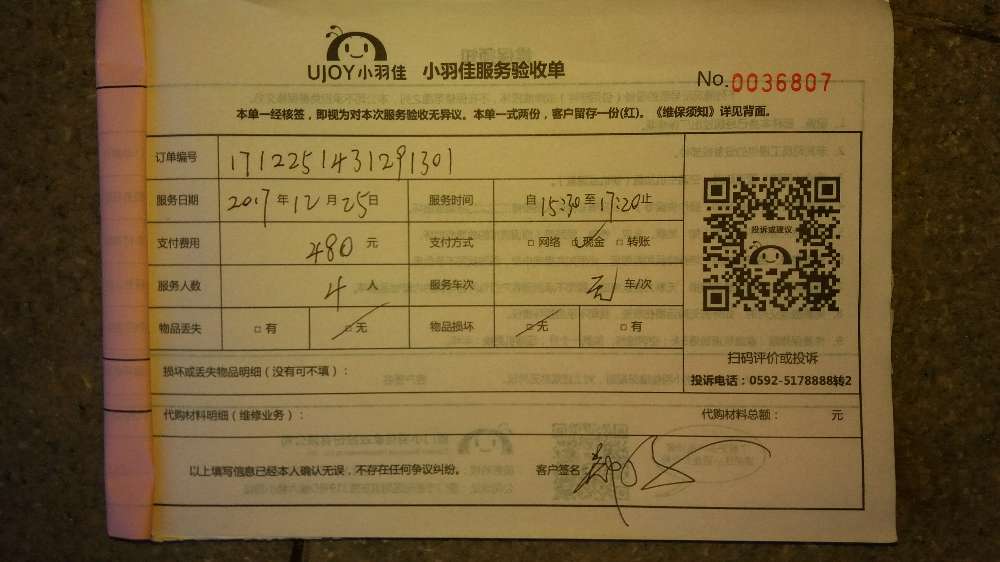 UJOY小羽佳 小羽佳服务验收单
No.0036807
本单一经核签，即视为对本次服务验收无异议。本单一式两份，客户留存一份(红)。《维保须知》详见背面。
订单编号 1712251431291301
服务日期 2017年12月25日 服务时间 自15:30至17:20止
支付费用 480元 支付方式 □网络 □现金 □转账
服务人数 4人 服务车次 无 车/次
物品丢失 □有 □无 物品损坏 □无 □有
投诉或建议
扫码评价或投诉
投诉电话：0592-5178888转2
损坏或丢失物品明细（没有可不填）：
代购材料明细（维修业务）： 代购材料总额： 元
以上填写信息已经本人确认无误，不存在任何争议纠纷。 客户签名